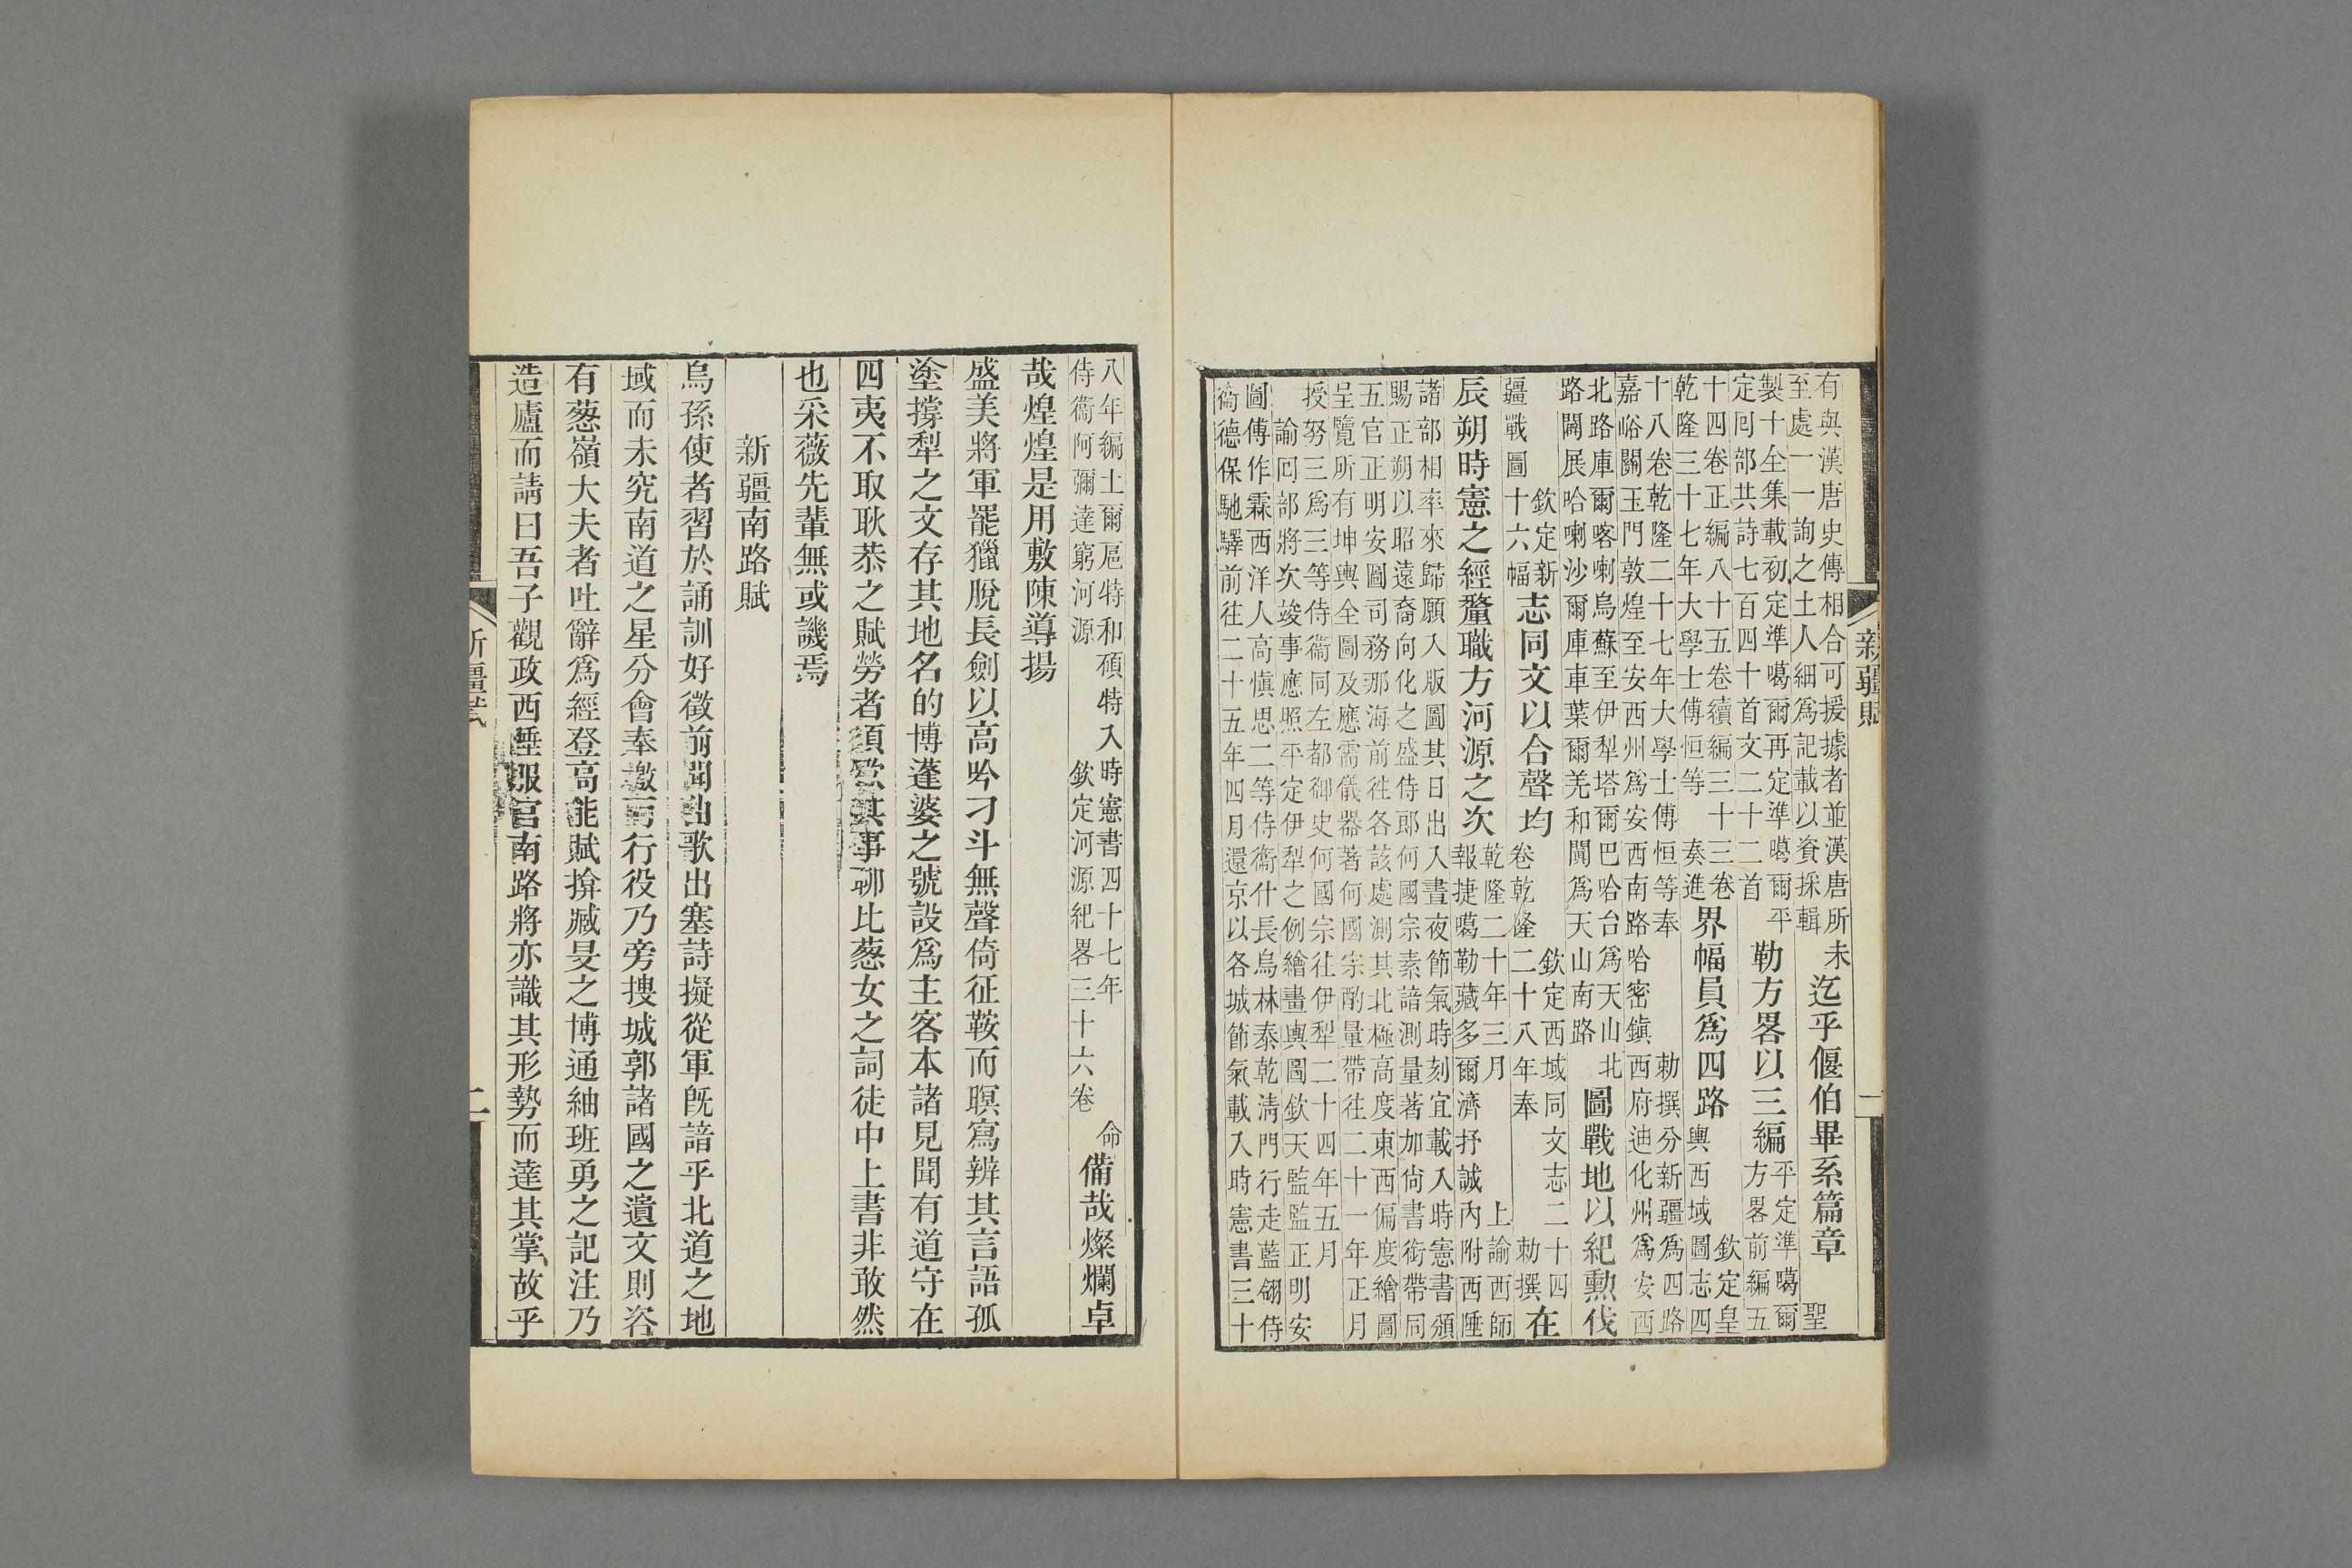 新疆賦
一
有與漢唐史傳相合可援據者並漢唐所未
至處一一詢之土人細為記載以資採輯
迄乎偃伯畢系篇章
聖
製十全集載初定準噶爾再定準噶爾平
定囘部共詩七百四十首文二十二首
勒方畧以三編
平定準噶爾
方畧前編五
十四卷正編八十五卷續編三十三卷
乾隆三十七年大學士傅恒等 奏進
界幅員爲四路
欽定皇
輿西域圖志四
十八卷乾隆二十七年大學士傅恒等奉 勅撰分新疆爲四路
嘉峪關玉門敦煌至安西州爲安西南路哈密鎮西府迪化州爲安西
北路庫爾喀喇烏蘇至伊犁塔爾巴哈台爲天山北
路闢展哈喇沙爾庫車葉爾羌和闐爲天山南路
圖戰地以紀勲伐
欽定新
疆戰圖十六幅
志同文以合聲均
欽定西域同文志二十四
卷乾隆二十八年奉 勅撰
在
辰朔時憲之經釐職方河源之次
乾隆二十年三月 上諭西師
報捷噶勒藏多爾濟抒誠內附西陲
諸部相率來歸願入版圖其日出入晝夜節氣時刻宜載入時憲書頒
賜正朔以昭遠裔向化之盛侍郎何國宗素諳測量著加尙書銜帶同
五官正明安圖司務那海前往各該處測其北極高度東西偏度繪圖
呈覽所有坤輿全圖及應需儀器著何國宗酌量帶往二十一年正月
授努三爲三等侍衞同左都御史何國宗往伊犁二十四年五月
諭囘部將次竣事應照平定伊犁之例繪畫輿圖欽天監監正明安
圖傅作霖西洋人高愼思二等侍衞什長烏林泰乾淸門行走藍翎侍
衞德保馳驛前往二十五年四月還京以各城節氣載入時憲書三十
八年編土爾扈特和碩特入時憲書四十七年 命
侍衞阿彌達窮河源 欽定河源紀畧三十六卷
備哉燦爛卓
哉煌煌是用敷陳導揚
盛美將軍罷獵脫長劍以高吟刁斗無聲倚征鞍而暝寫辨其言語孤
塗撐犁之文存其地名的博蓬婆之號設爲主客本諸見聞有道守在
四夷不取耿恭之賦勞者須歌其事聊比葱女之詞徒中上書非敢然
也采薇先輩無或譏焉
新疆南路賦
烏孫使者習於誦訓好徵前聞出歌出塞詩擬從軍旣諳乎北道之地
域而未究南道之星分會奉檄而行役乃旁搜城郭諸國之遺文則咨
有葱嶺大夫者吐辭爲經登高能賦揜臧旻之博通紬班勇之記注乃
造廬而請曰吾子觀政西陲服官南路將亦識其形勢而達其掌故乎
新疆賦
二